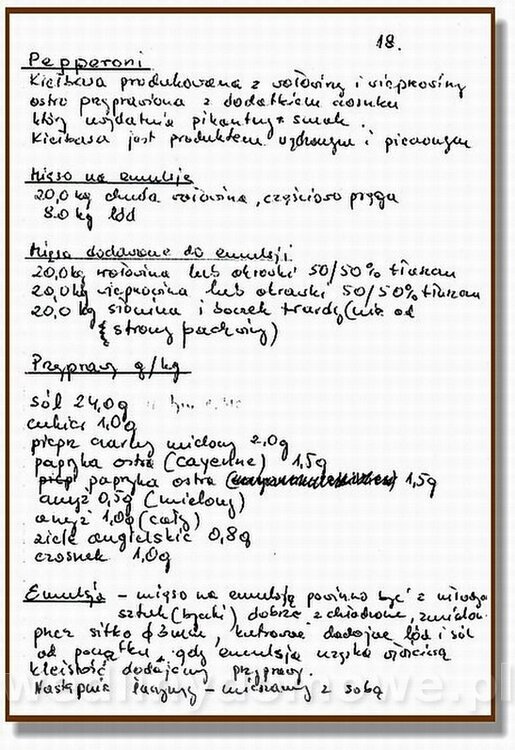 18.
Pepperoni
Kiełbasa produkowana z wołowiny i wieprzowiny
ostro przyprawiona z dodatkiem czosnku
który uwydatnia pikantny smak.
Kiełbasa jest produktem wędzonym i pieczonym
Mięso na emulsję
20,0 kg chuda wołowina, częściowo pręga
8.0 kg lód
Mięsa dodawane do emulsji
20,0 kg wołowina lub okrawki 50/50% tłuszczu
20,0 kg wieprzowina lub okrawki 50/50% tłuszczu
20,0 kg słonina i boczek twardy (nie od
strony pachwiny)
Przyprawy g/kg
sól 24,0g
cukier 1,0g
pieprz czarny mielony 2,0g
papryka ostra (cayenne) 1,5g
papryka ostra 1,5g
anyż 0,5g (mielony)
anyż 1,0g (cały)
ziele angielskie 0,8g
czosnek 1,0g
Emulsja – mięso na emulsję powinno być z młodych
sztuk (byczki), dobrze schłodzone, zmielone
przez sitko φ 3mm, kutrować dodając lód i sól
od początku, gdy emulsja uzyska właściwą
kleistość dodajemy przyprawy.
Następnie łączymy – mieszamy z sobą
wedlinydomowe.pl